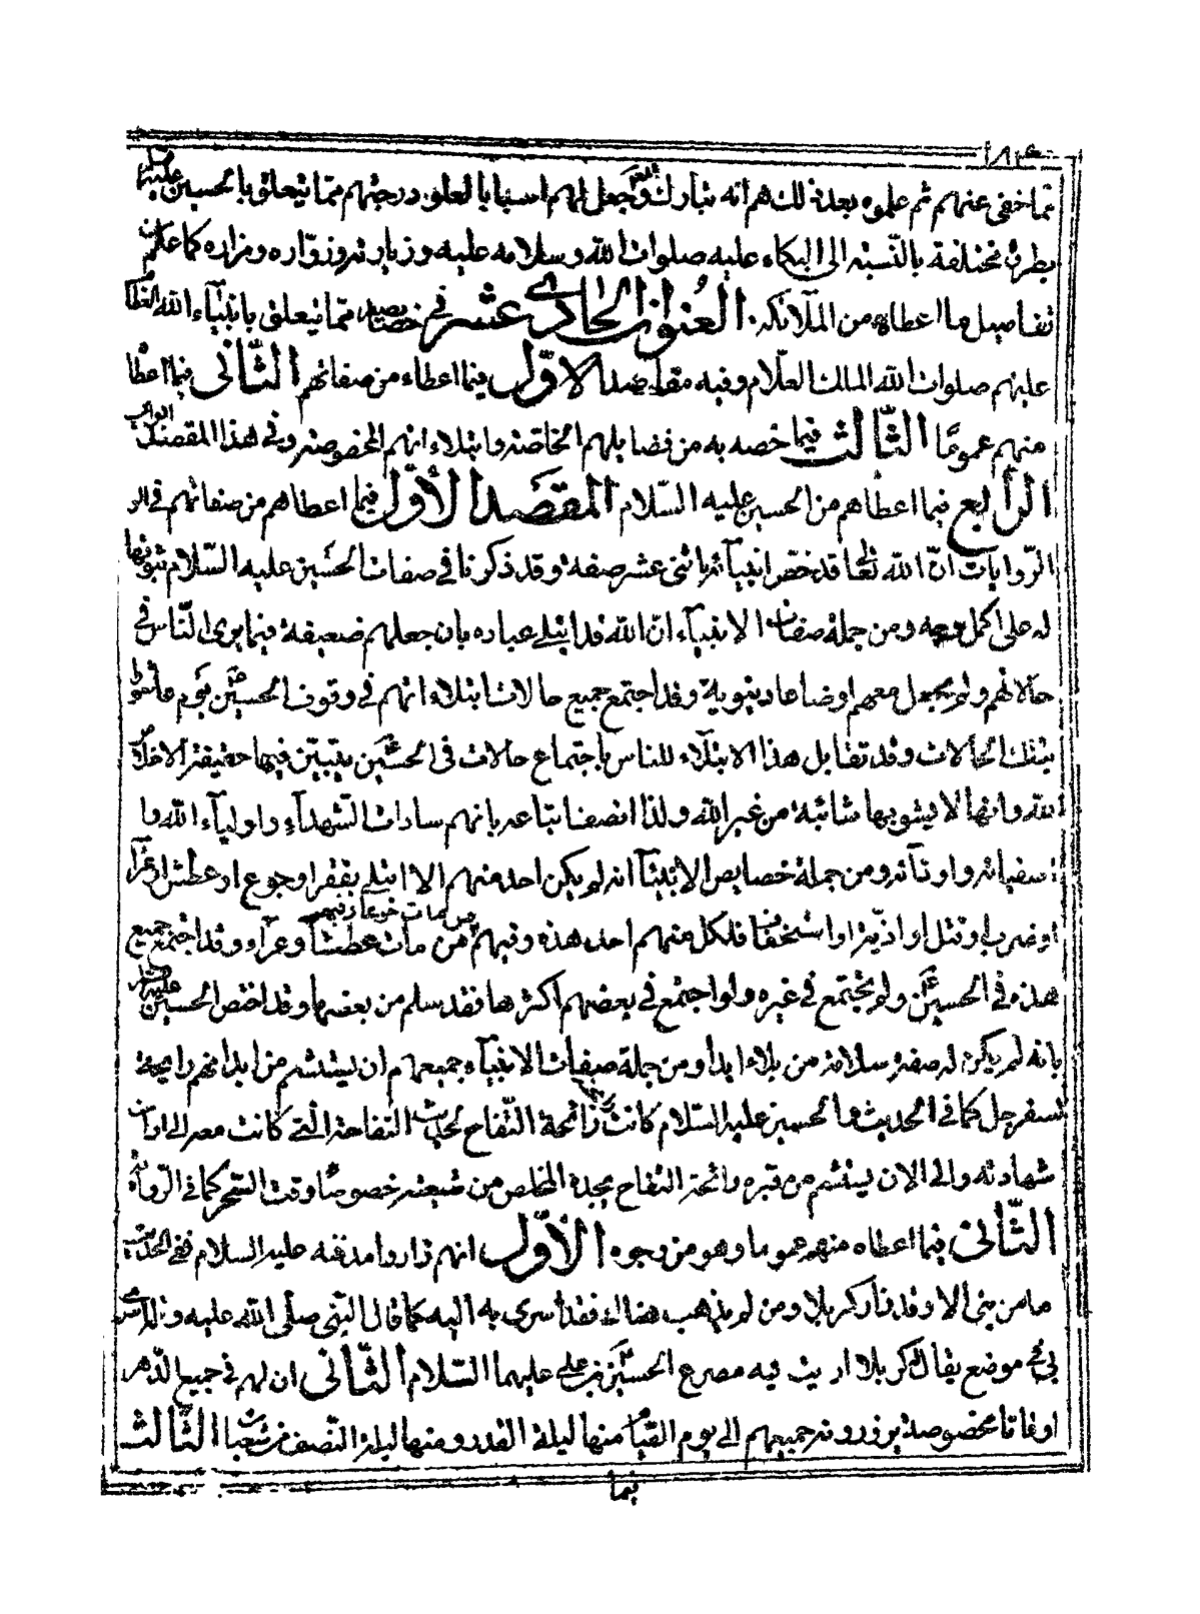 مما خفى عنهم ثم علموه بعد ذلك هم انه تبارك وتعالى جعل لهم اسبابا لعلو درجتهم مما يتعلق بالحسين عليه السلام
بطرق مختلفة بالنسبة الى البكاء عليه صلوات الله وسلامه عليه وزيارته وزواره ومزاره كما علمت
تفاصيل ما اعطاه من الملائكة. العنوان الحادي عشر في خصايصه مما يتعلق بانبياء الله العظام
عليهم صلوات الله الملك العلام وفيه مقاصد الاوّل فيما اعطاه من صفاتهم الثّانى فيما اعطاه
منهم عموما الثّالث فيما خصه به من فضايلهم الخاصة وابتلاءاتهم المخصوصة وفي هذا المقصد ابواب
الرّابع فيما اعطاهم من الحسين عليه السّلام المقصد الأوّل فيما اعطاهم من صفاتهم في
الرّوايات انّ الله تعالى قد خصّ انبيائه باثنى عشر صفة وقد ذكرنا في صفات الحسين عليه السّلام ثبوتها
له على اكمل وجه ومن جملة صفات الانبياء انّ الله قد ابتلى عباده بان جعلهم ضعيفة فيما يرى النّاس في
حالاتهم ولم يجعل معهم اوضاعا دنيوية وقد اجتمع جميع حالات ابتلاءاتهم في وقوف الحسين يوم عاشورا
بتلك الحالات وقد تقابل هذا الابتلاء للناس باجتماع حالات فى الحسين يتبيّن فيها حقيقة الاخلاص
لله وانها لا يشوبها شائبة من غير الله ولذا اتصف اتباعه بانهم سادات الشهداء واولياء الله وا
صفيائه واودّائه ومن جملة خصايص الانبياء انه لم يكن احد منهم الا ابتلى بفقر او جوع او عطش او عراء
او ضرب او قتل او اذيّة او استخفاف فلكل منهم احد هذه وفيهم من مات عطشا وعراء وقد اجتمع جميع
هذه في الحسين ولم تجتمع في غيره ولو اجتمع في بعضهم اكثرها فقد سلم من بعضها وقد اختص الحسين عليه السلام
بانه لم يكن له صفة سلامة من بلاء ابدا ومن جملة صفات الانبياء جميعهم ان يستشم من ابدانهم رائحة
السفرجل كما في الحديث والحسين عليه السّلام كانت رائحة التّفاح لحديث التفاحة الّتي كانت معه الى اوان
شهادته والى الان يستشم من قبره رائحة التفاح يجده المخلص من شيعته خصوصا وقت السّحر كما في الرواية
الثّانى فيما اعطاه منهم عموما وهو من وجوه الأوّل انهم زاروا مدفنه عليه السلام ففي الحديث
ما من نبى الا وقد زار كربلا ومن لم يذهب هناك فقد أسرى به اليه كما قال النّبى صلّى الله عليه واله اسرى
بي الى موضع يقال له كربلا اريت فيه مصرع الحسين بن على عليهما السّلام الثّانى ان لهم في جميع الدّهر
اوقاتا مخصوصة يزورونه جميعهم الى يوم القيامة منها ليلة القدر ومنها ليلة النّصف من شعبان الثّالث
فيما